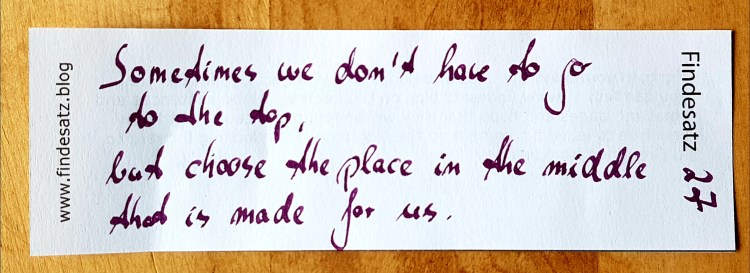 www.findesatz.blog
Sometimes we don't have to go
to the top,
but choose the place in the middle
that is made for us.
Findesatz 27